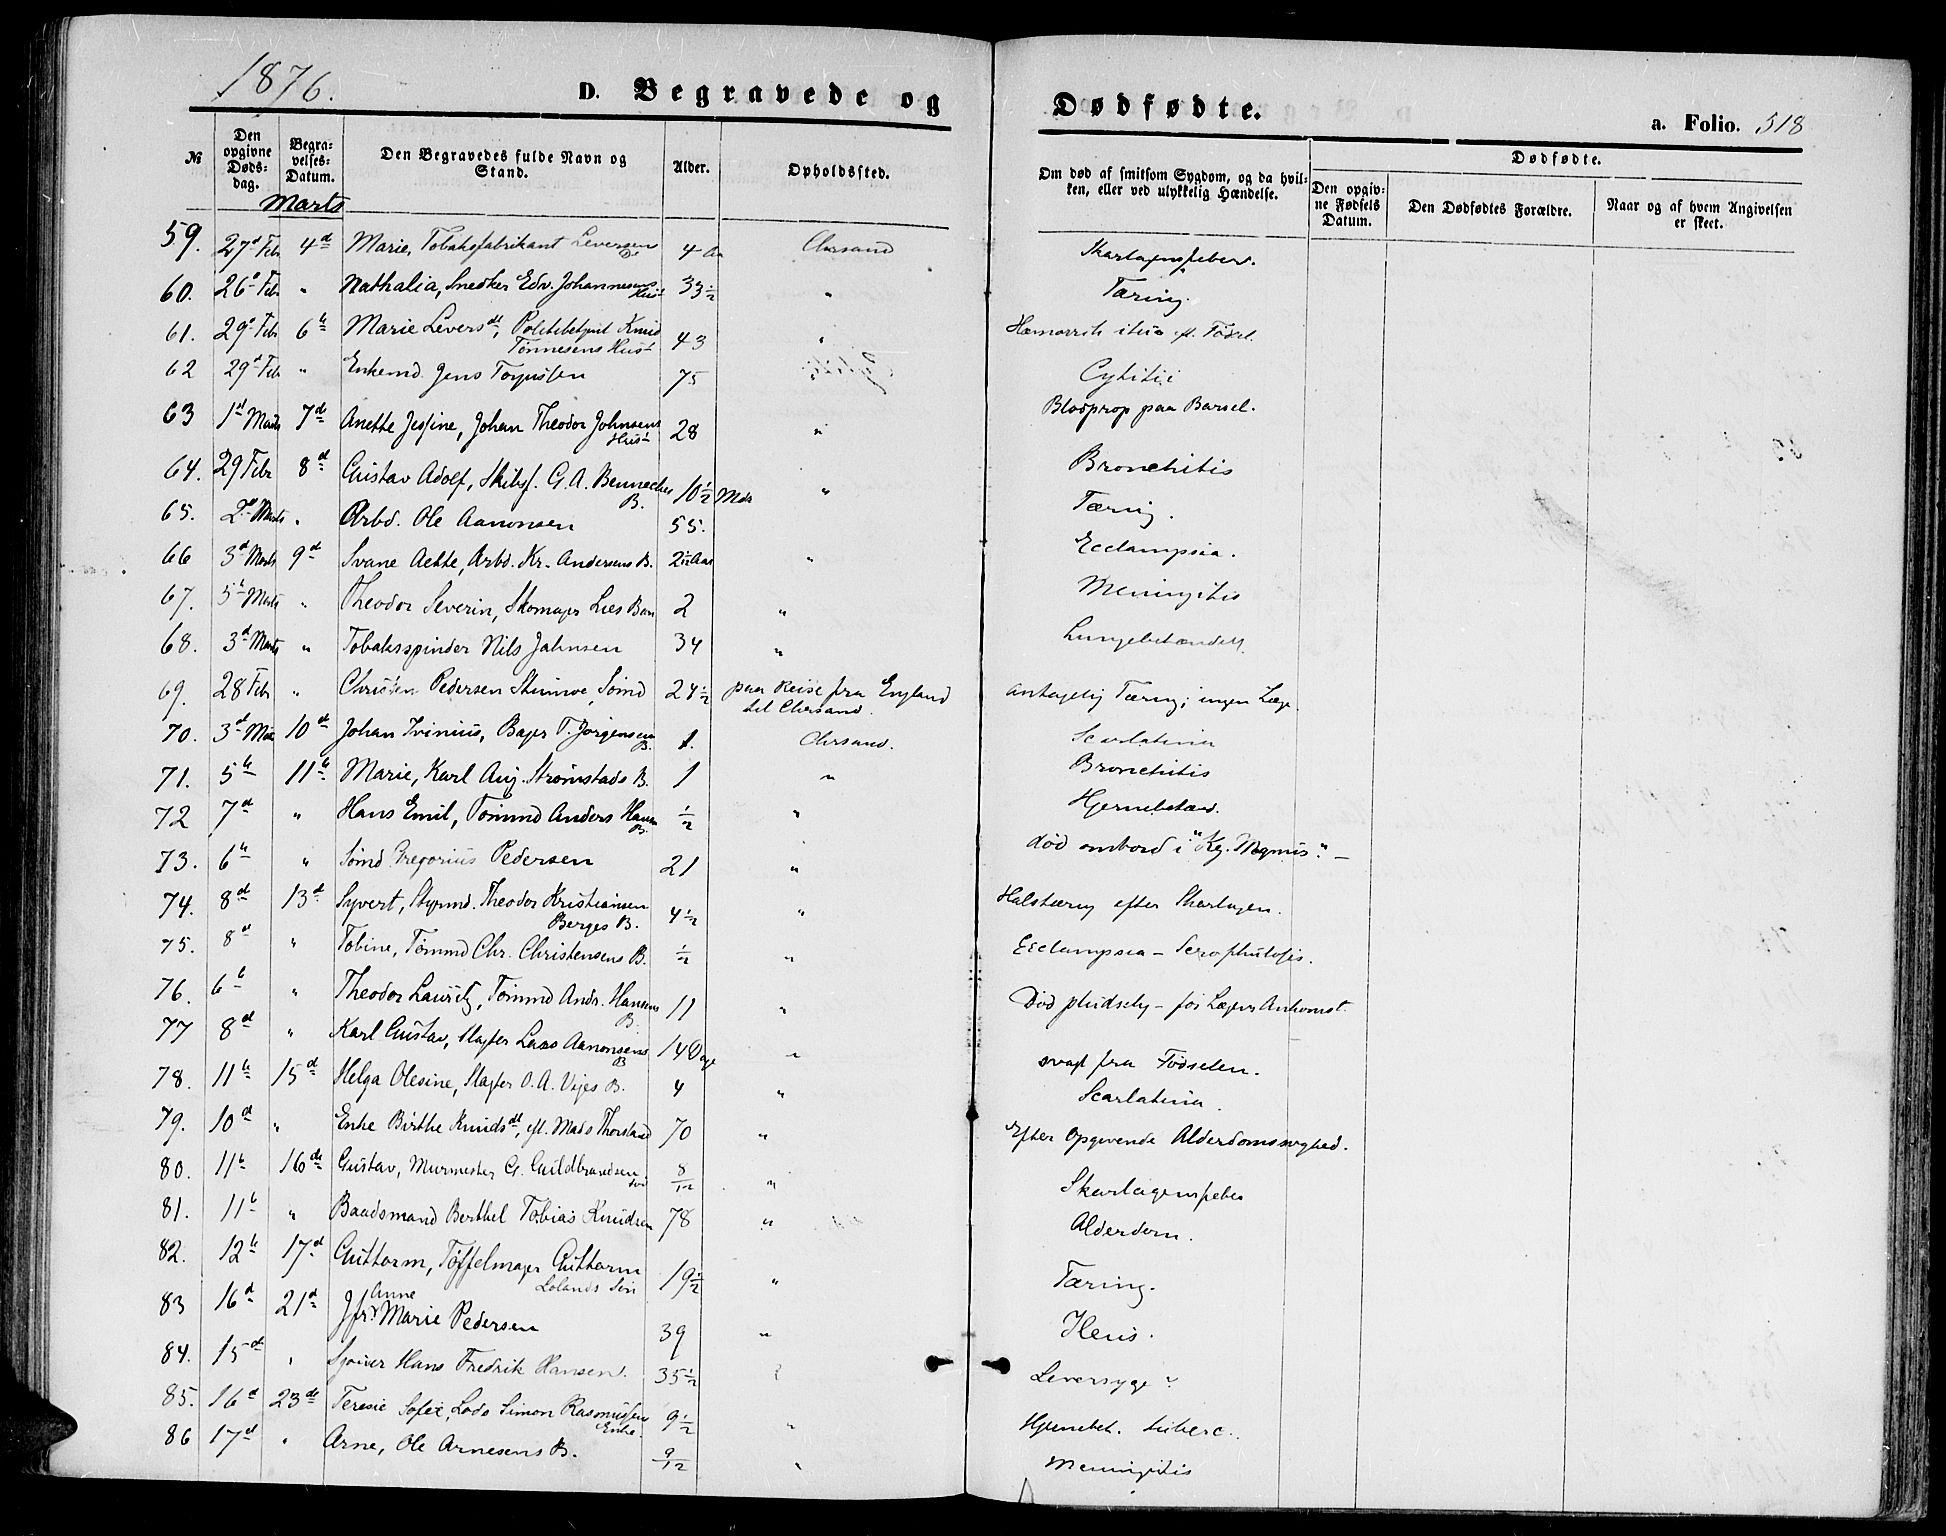 1876.
D. Begravede og
Dødfødte.
a. Folio. 518
№
Den opgivne Døds-dag.
Begra-velses-Datum.
Den Begravedes fulde Navn og Stand.
Alder.
Opholdssted.
Om død af smitsom Sygdom, og da hvil-ken, eller ved ulykkelig Hændelse.
Dødfødte.
Den opgiv-ne Fødsels Datum.
Den Dødfødtes Forældre.
Naar og af hvem Angivelsen er skeet.
Marts
59. 27d Febr 4de Marie, Tobaksfabrikant Leversen 4 Aar Chrsand Skarlagensfeber.
60. 26d Febr " Nathalia, Snedker Edv. Johannesens Hust 33½ " Tæring.
61. 29d Febr 6te Marie Leversdt, Politibetjent Knud Tønnesens Hust 43 " ef. Fødsel
62 29d Febr " Enkemd. Jens Torjussen 75 "
63 1d Marts 7de Anette Jessine, Johan Theodor Johnsens Hust 28 " Blodprop paa Barsel.
64. 29 Febr 8d Gustav Adolf, Skibsf. G. A. Benneches B. 10½ Mdr " Bronchitis
65. 2d Marts " Arbd. Ole Aanonsen 55. Tæring.
66 3d Marts 9d Svane Aette, Arbd. Kr. Andersens B. 2½ Aar " Ecclampsia.
67. 5te Marts " Theodor Severin, Skomager Lies Barn 2 " Meningitis
68. 3d Marts " Tobaksspinder Nils Jahnsen 34 " Lungebetændels.
69. 28 Febr " Christen Pedersen Sømd 24½ paa Reise fra England til Chrsand. antagelig Tæring; ingen Læge.
70. 3d Mar 10d Johan Irinius, Bager T. Jørgensen B. 1. Chrsand. Scarlatina
71. 5te 11te Marie, Karl Aug. Strømstads B. 1 " Bronchitis
72 7d " Hans Emil, Tømmd Anders Hansen B. ½ " Hjernebetænd.
73. 6te " Sømd Gregorius Pedersen 21 " død ombord i "Kg. Magnus". –
74. 8d 13d Syvert, Styrmd. Theodor Kristiansen Berges B. 4½ " Halstæring efter Skarlagen.
75. 8d " Tobine, Tømmd Chr. Christensens B. ½ " Ecclampsia – Scrophulosis.
76. 6te " Theodor Lauritz, Tømmd Andr. Hansens B. 11 " Død pludselig – før Lægens Ankomst.
77 8d " Karl Gustav, Slagter Lars Aanonsens B 14 Dage " svag fra Fødselen.
78. 11te 15d Helga Olesine, Slagter O. A. Viges B. 4 " Scarlatina.
79. 10d " Enke Birthe Knudsdt, ef. Mads Thorsland 70 " Efter Opgivende Alderdomssvaghed.
80. 11te 16de Gustav, Murmester G. Guldbrandsen Søn 8/12 " Skarlagensfeber
81. 11te " Baadsmand Berthel Tobias Knudsen 78 " Alderdom.
82. 12te 17d Guttorm, Tøffelmager Guttorm Lolands Søn 19½ " Tæring.
83 16d 21d Jfr. Anne Marie Pedersen 39 " Ileus.
84. 15d " Hans Fredrik Hansen. 35½ " Leversyge?
85. 16d 23de Teresie Sofie, Lods Simon Rasmussens Enke. 9½ " Hjernebet. tuberc.
86 17d " Arne, Ole Arnesens B. 9/12 " Meningitis